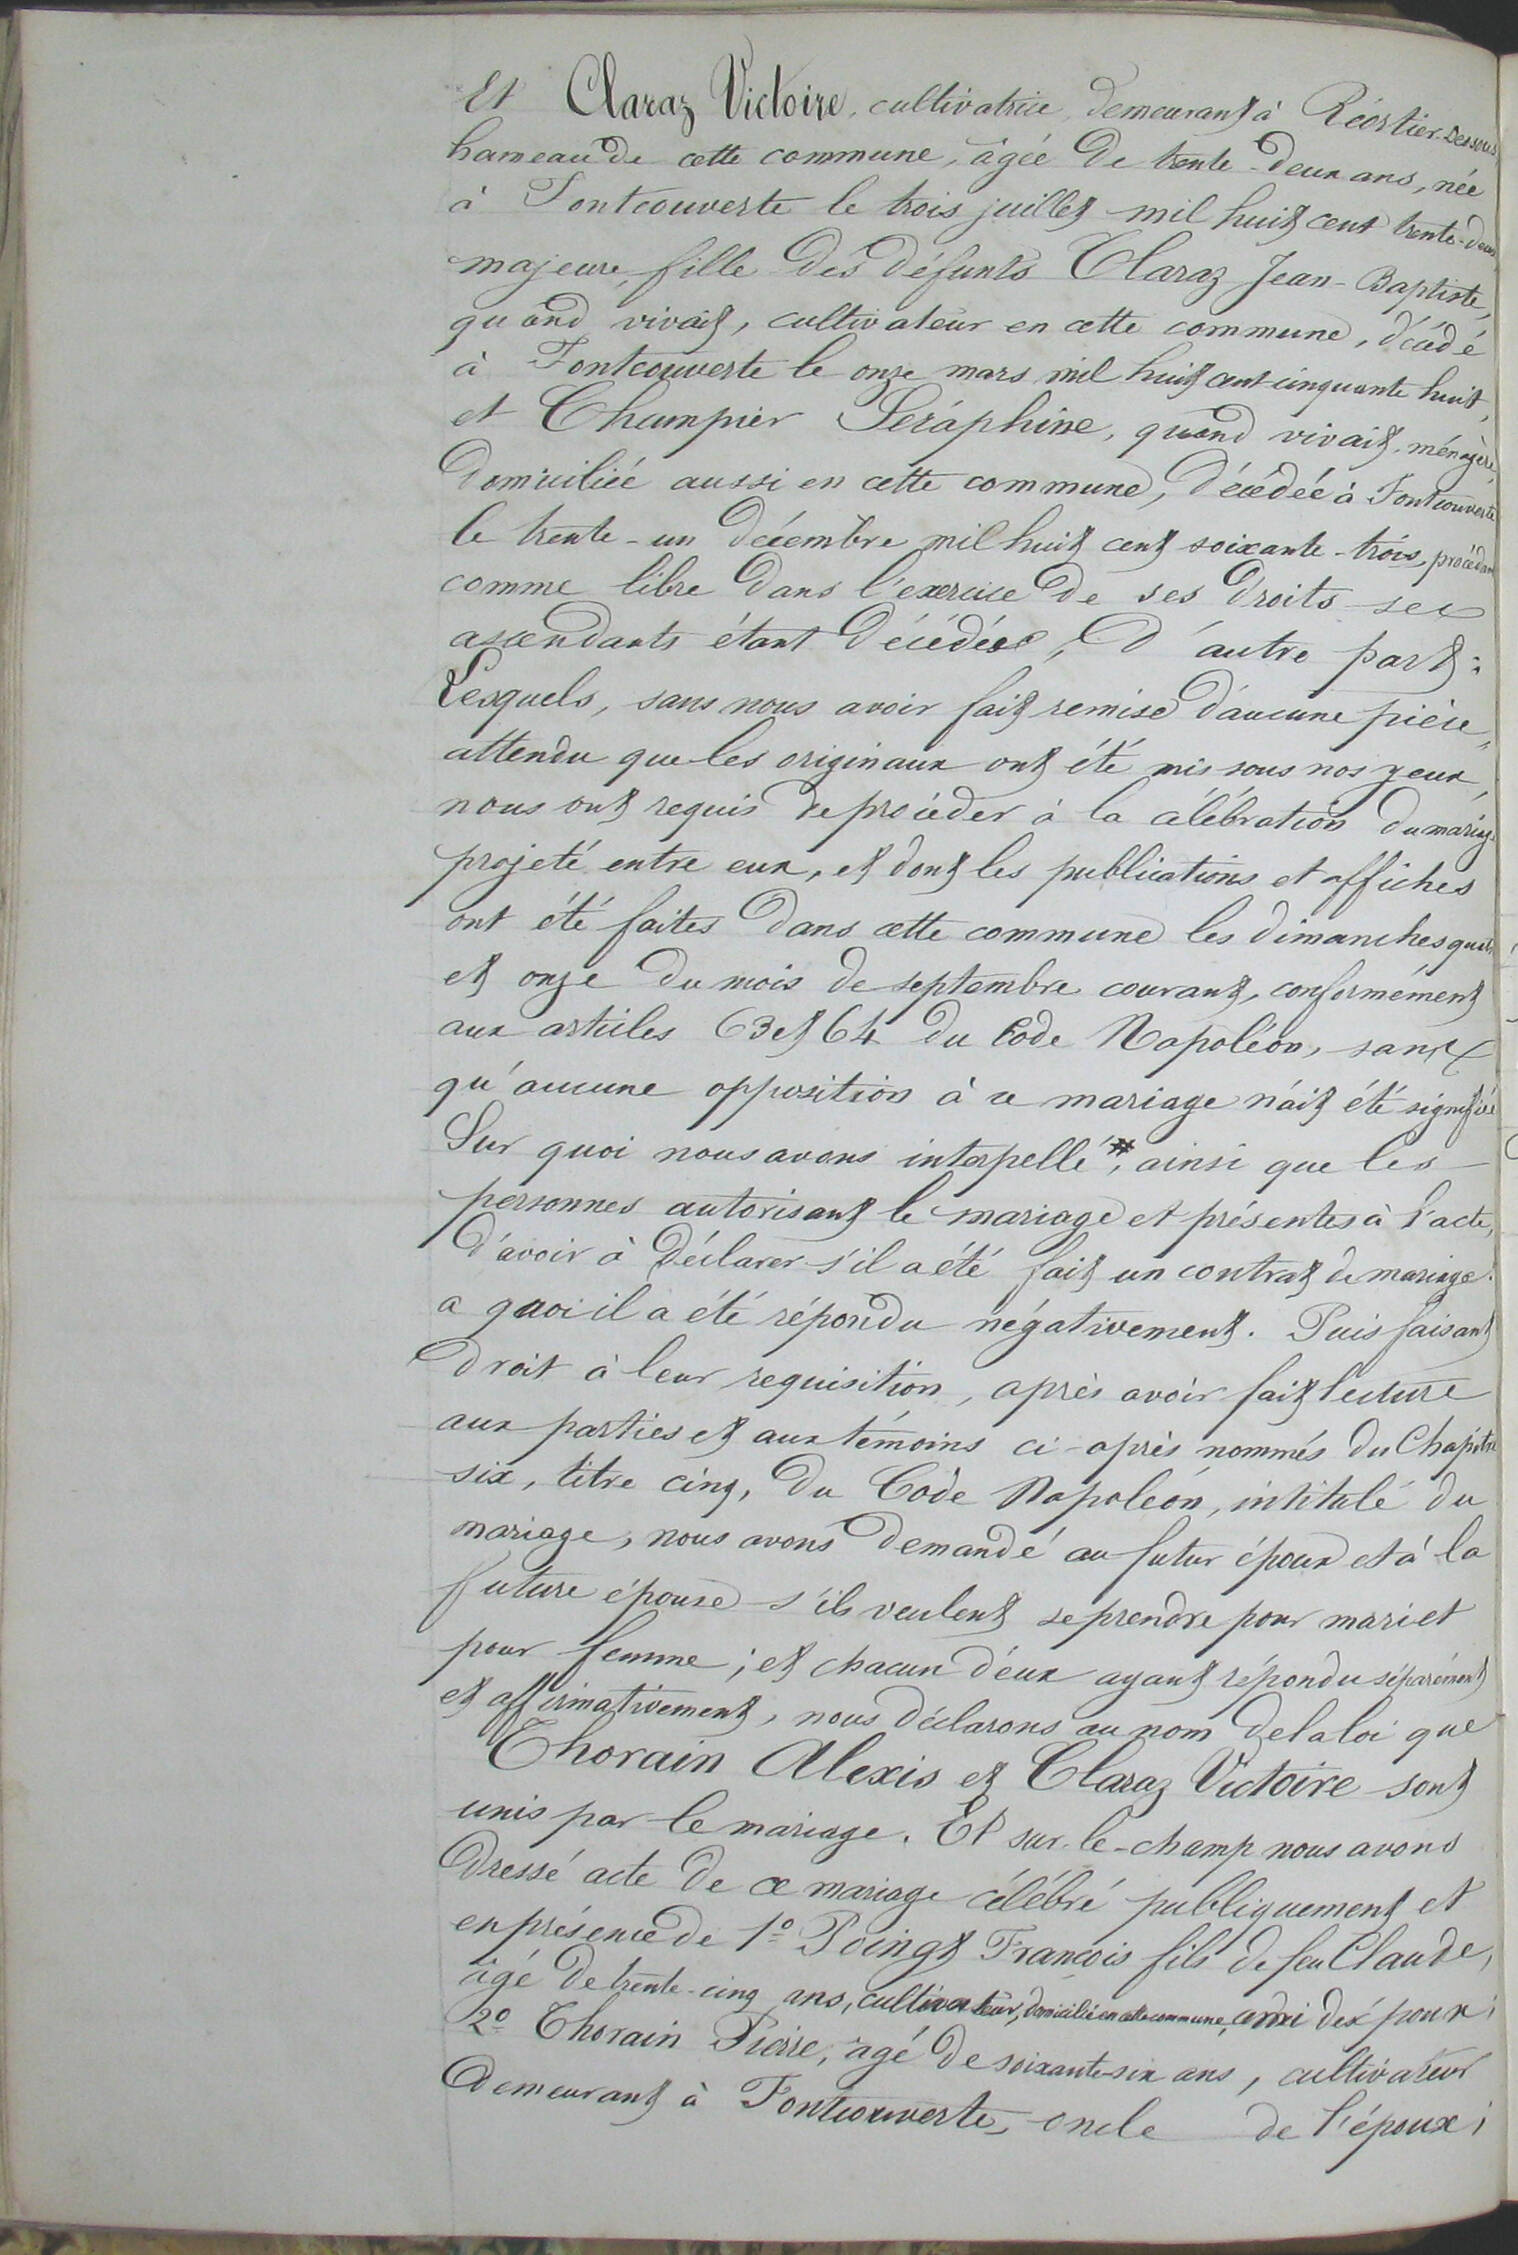 Et Claraz Victoire, cultivatrice, demeurant à Réortier-dessous
hameau de cette commune, âgée de trente-deux ans, née
à Fontcouverte le trois juillet mil huit cent trente-deux
majeure, fille des défunts Claraz Jean-Baptiste,
quand vivait, cultivateur en cette commune, décédé
à Fontcouverte le onze mars mil huit cent cinquante huit,
et Champier Seraphine, quand vivait, ménagère,
domiciliée aussi en cette commune, décédée à Fontcouverte
le trente-un décembre mil huit cent soixante-trois, procédant
comme libre dans l'exercice de ses droits ses
ascendants étant décédés, d'autre part:
Lesquels, sans nous avoir fait remise d'aucune pièce,
attendu que les originaux ont été mis sous nos yeux,
nous ont requis de procéder à la célébration du mariage
projeté entre eux, et dont les publications et affiches
ont été faites dans cette commune les dimanches quatre
et onze du mois de septembre courant, conformément
aux articles 63 et 64 du Code Napoléon, sans
qu'aucune opposition à ce mariage n'ait été signifiée
Sur quoi nous avons interpellé #, ainsi que les
personnes autorisant le mariage et présentes à l'acte,
d'avoir à déclarer s'il a été fait un contrat de mariage.
a quoi il a été répondu négativement. Puis faisant
droit à leur requisition, après avoir fait lecture
aux parties et aux témoins ci-après nommés du Chapitre
six, titre cinq, du Code Napoléon, intitulé du
mariage, nous avons demandé au futur époux et à la
future épouse s'ils veulent se prendre pour mari et
pour femme; et chacun d'eux ayant répondu séparément
et affirmativement, nous déclarons au nom de la loi que
Thorain Alexis et Claraz Victoire sont
unis par le mariage. Et sur-le-champ nous avons
dressé acte de ce mariage célébré publiquement et
en présence de 1º Poingt François fils de feu Claude,
âgé de trente-cinq ans, cultivateur, domicilié en cette commune, ami des époux;
2º Thorain Pierre, agé de soixante-six ans, cultivateur
demeurant à Fontcouverte, oncle de l'époux;